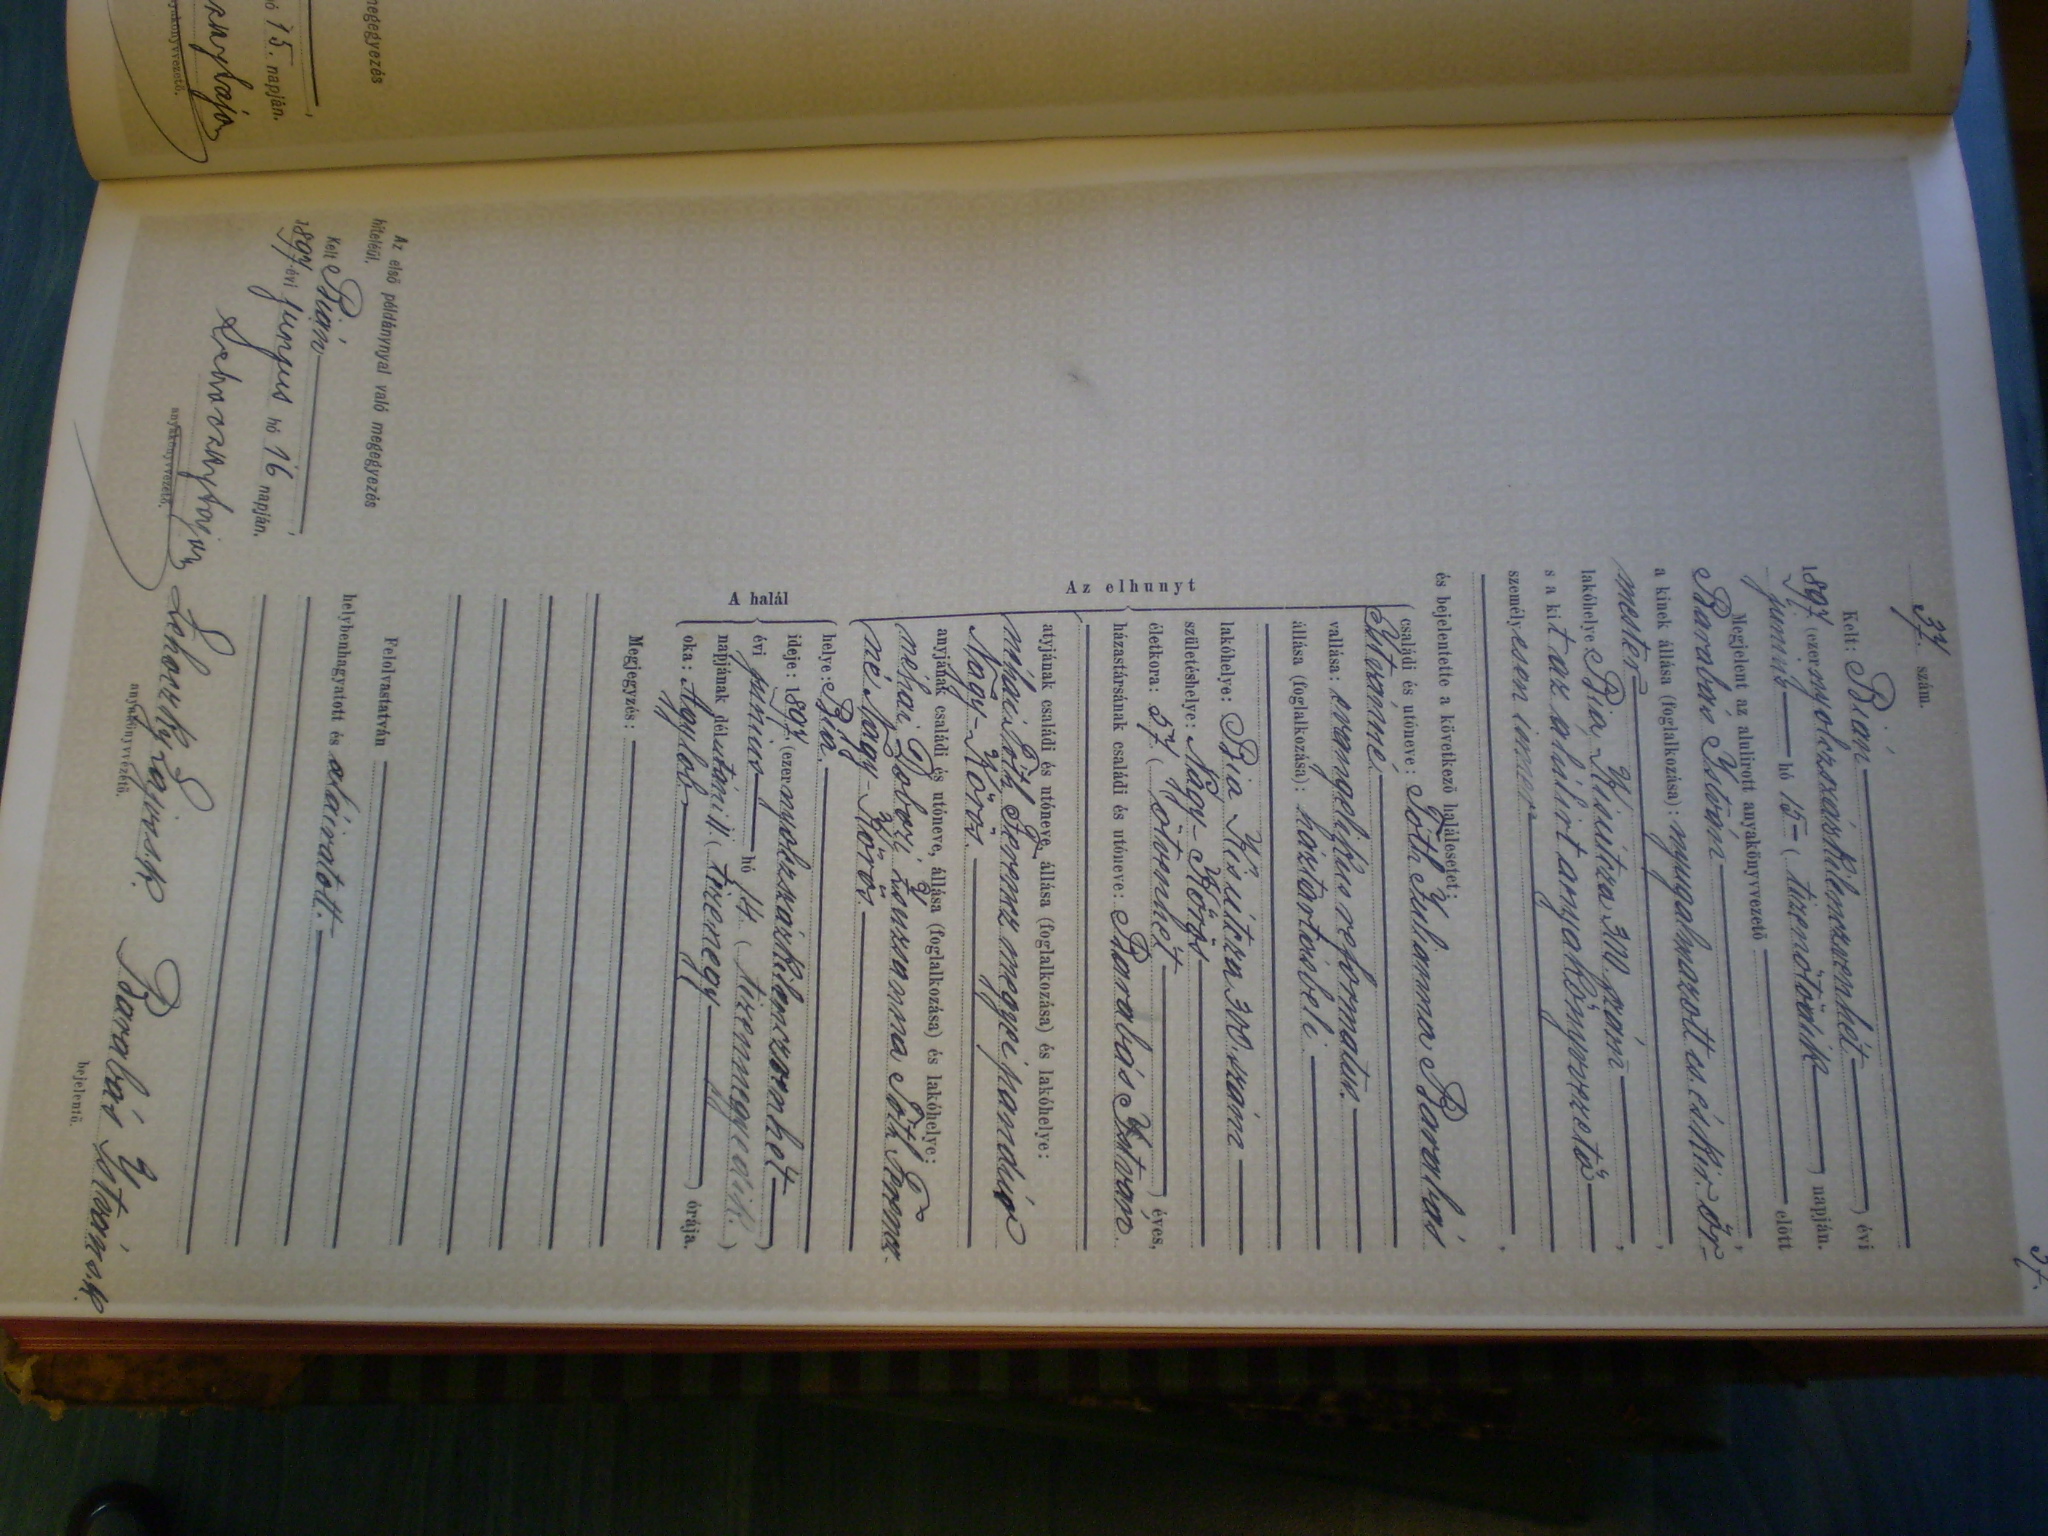 37. szám.
37.
Kelt: Bián (ezernyolczszázkilenczvenhét) évi
1897. június hó 15- (tizenötödik) napján.
Megjelent az alulirott anyakönyvvezető előtt
Barabás István,
a kinek állása (foglalkozása): nyugalmazott cs. és kir. őr-
mester,
lakóhelye Bia, Kisútcza 300. szám,
s a kit az alúlirt anyakönyvvezető
személyesen ismer,
és bejelentette a következő halálesetet:
családi és utóneve: Tóth Julianna Barabás
Istvánné.
vallása: evangelikus református.
állása (foglalkozása): háztartásbeli.
lakóhelye: Bia, Kisútcza 300. szám
születéshelye: Nagy-Kőrös
életkora: 57 (ötvenhét) éves,
házastársának családi és utóneve: Barabás István
Az elhunyt
atyjának családi és utóneve, állása (foglalkozása) és lakóhelye:
néhai Tóth Ferencz megyei pandúr
Nagy-Kőrös.
anyjának családi és utóneve, állása (foglalkozása) és lakóhelye:
néhai Dobozi Zsuzsanna Tóth Ferencz-
né, Nagy-Kőrös.
A halál
helye: Bia.
ideje: 1897. (ezernyolczszázkilenczvenhét)
évi június hó 14. (tizennegyedik.)
napjának délutáni 11. (tizenegy) órája.
oka: Agylob
Megjegyzés:
Felolvastatván
helybenhagyatott és aláiratott.
anyakönyvvezető.
Barabás István s. k.
bejelentő.
Az első példánynyal való megegyezés
hiteléül.
Kelt Bián,
1897. évi junius hó 16 napján.
anyakönyvvezető.
megegyezés
hó 15. napján.
anyakönyvvezető.